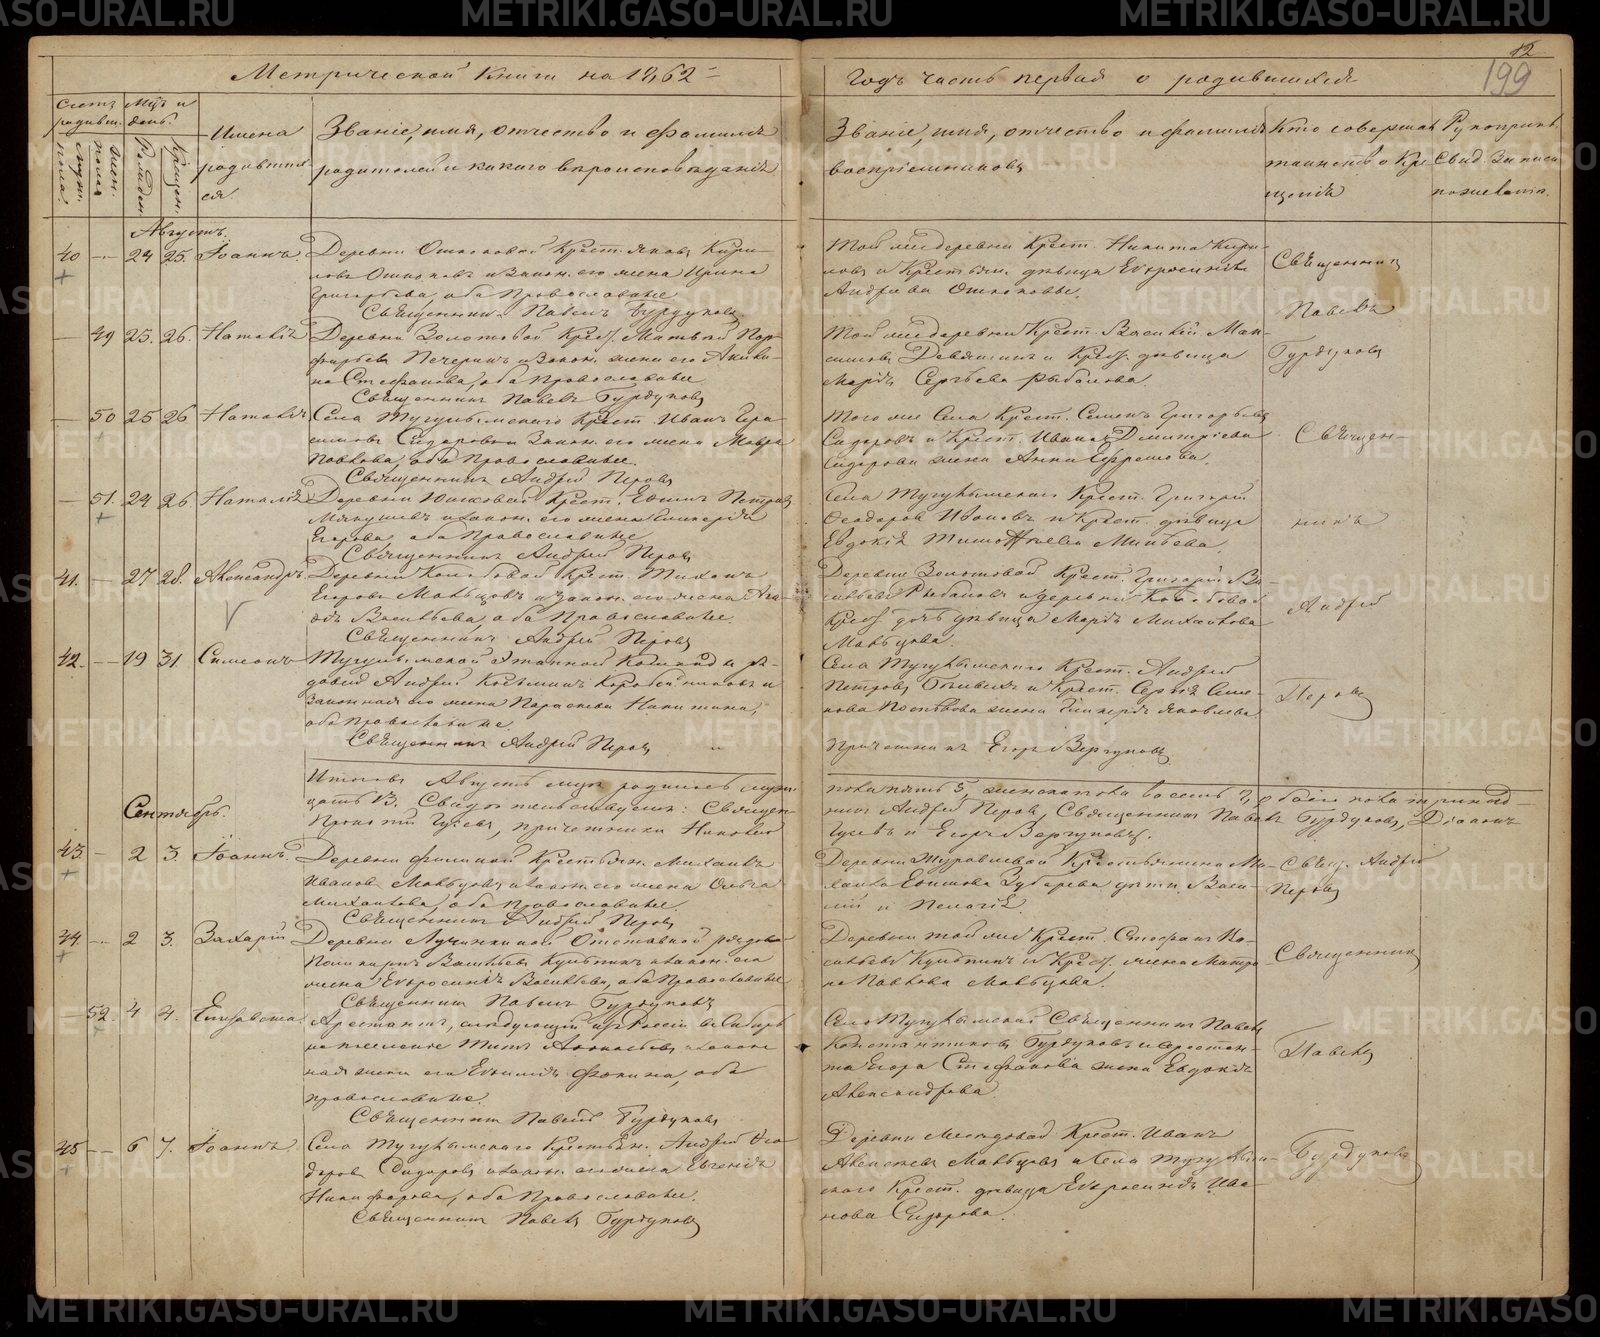 Метрической Книги на 1862 =
годъ часть первая о родившихся
12
199
Счетъ родивш.
Муж. пола.
Жен. пола
Мѣс. и день.
Рожден.
Крещен.
Имена родившихся.
Званіе, имя, отчество и фамилія
родителей и какого вѣроисповѣданія
Званіе, имя, отчество и фамилія
воспріемниковъ
Кто совершалъ
таинство Кре
щенія
Рукоприк.
Свид. записи
по желанію.
Августъ.
40 24 25. Іоаннъ
Крест. Яковъ Кири-
ловъ и закон. его жена Ирина
Григорьева, оба Православные
Священник. Павелъ Бурдуковъ
Той же деревни Крест. Никита Кири-
ловъ и Крестьян. дѣвица Евфросинія
Андреева
Священникъ
Павелъ
Бурдуковъ
49 25. 26. Наталія
Деревни Золотовой Крест. Матвѣй Пор-
фирьевъ Печеринъ и закон. жена его Акили-
на Стефанова, оба православные
Священникъ Павелъ Бурдуковъ
Той же деревни Крест. Василій Мак-
симовъ Девяшинъ и Крест. дѣвица
Марія Сергѣева Рыбалова.
50 25 26 Наталія
Села Тугулымскаго Крест. Иванъ Гра-
Сидоровъ и закон. его жена Мавра
Павлова, оба Православные.
Священникъ Андрей Перовъ
Того же Села Крест. Семенъ Григорьевъ
Сидоровъ и Крест. Ивана Дмитріева
Сидорова жена Анна Ефремова.
Священ-
51. 24 26 Наталія
Деревни Юшковой Крест. Ефимъ Петровъ
Мякушевъ и закон. его жена Гликерія
Егорова, оба Православные
Священникъ Андрей Перовъ
Села Тугулымскаго Крест. Григорій
Феодоровъ Ивановъ и Крест. дѣвица
Евдокія Тимофѣева Минѣева.
никъ
41. 27 28. Александръ.
Деревни Колобовой Крест. Тихонъ
Егоровъ Мальцовъ и закон. его жена Ага-
ѳія Васильева, оба Православные.
Священникъ Андрей Перовъ
Деревни Золотовой Крест. Григорій Ва-
сильевъ Рыбаловъ и деревни Колобовой
Крест. дочь дѣвица Марія Михайлова
Мальцова.
Андрей
42. 19 31. Симеонъ
Тугулымской этапной Команды ря-
довой Андрей Косьминъ Коробейниковъ и
законная его жена Параскева Никитина,
оба православные
Священникъ Андрей Перовъ
Села Тугулымскаго Крест. Андрей
Петровъ и Крест. Сергія Семе-
нова жена Гликерія Яковлева
Причетникъ Егоръ Вергуновъ
Перовъ
Итого въ Августѣ мѣс. родилось муж.
пола пять 5, женскаго восемь 8, обоего пола тринад-
цать 13. Свидѣтельствуемъ: Священ-
никъ Андрей Перовъ, Священникъ Павелъ Бурдуковъ, Діаконъ
Прокопій Гусевъ, причетники Николай
Гусевъ и Егоръ Вергуновъ.
Сентябрь.
43. 2 3. Іоаннъ.
Деревни Филиной Крестьян. Михаилъ
Ивановъ Мальцовъ и закон. его жена Ольга
Михайлова, оба православные.
Священникъ Андрей Перовъ
Деревни Журавлевой Крестьянина Ми-
хаила Ефимова Зубарева дѣти Васи-
лій и Пелагія.
Свящ. Андрей
Перовъ
44. 2 3. Захарій
Деревни Лучинкиной Отставной рядовой
Поликарпъ Васильевъ Кульпинъ и закон. его
жена Евфросинія Васильева, оба Православные
Священникъ Павелъ Бурдуковъ
Деревни той же Крест. Стефанъ Ва-
сильевъ Кульпинъ и Крест. жена Матре-
на Павлова Мальцова.
Священникъ
52. 4 4. Елизавета.
Арестантъ, слѣдующій изъ Россіи въ Сибирь
на поселеніе Титъ и закон
ная жена его Евфимія Фокина, оба
православные.
Священникъ Павелъ Бурдуковъ
Села Тугулымскаго Священникъ Павелъ
Константиновъ Бурдуковъ и арестан-
та Егора Стефанова жена Евдокія
Александрова.
Павелъ
45 6 7. Іоаннъ
Села Тугулымскаго Крестьян. Андрей Ѳео
доровъ Сидоровъ и закон. его жена Евгенія
Никифорова, оба Православные.
Священникъ Павелъ Бурдуковъ
Деревни Крест. Иванъ
Алексѣевъ Мальцовъ и села Тугулым-
скаго Крест. дѣвица Евфросинія Ива-
нова Сидорова.
Бурдуковъ
METRIKI.GASO-URAL.RU